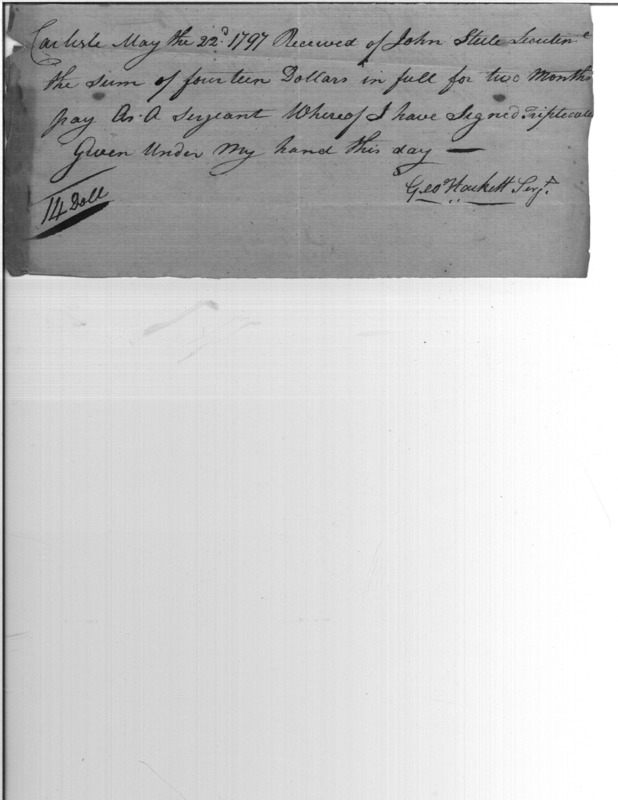 Carlisle May the 22d 1797 Received of John Steele Lieutent
the sum of fourteen Dollars in full for two Months
pay As A Sergeant Whereof I have Signed Triplecates
Given Under My hand this day —
Geo Hackett Serjt.
14 Doll